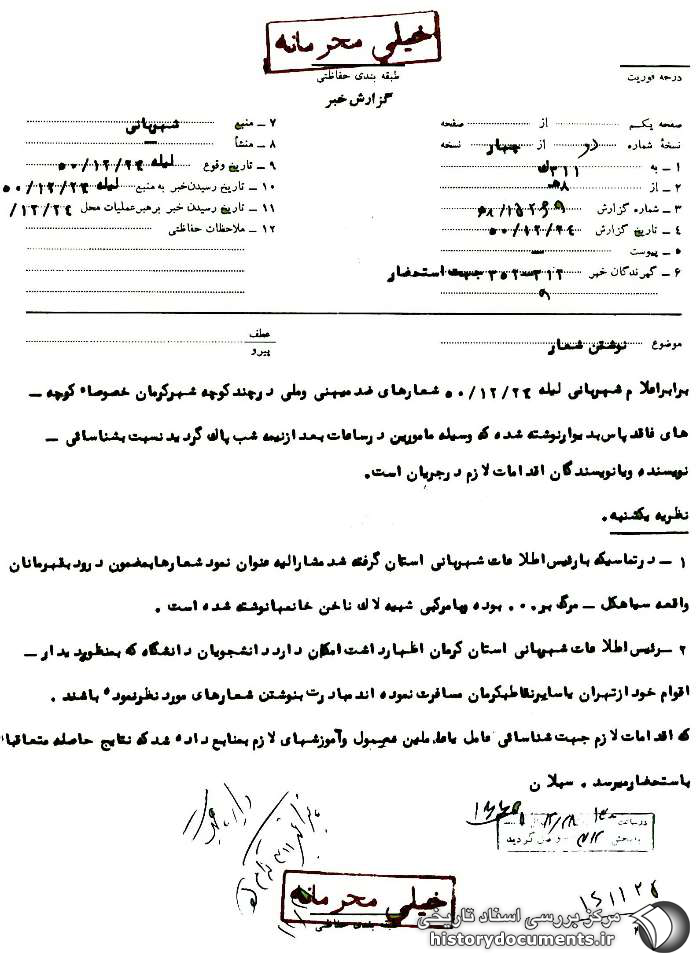 خیلی محرمانه
طبقه بندی حفاظتی
درجه فوریت
گزارش خبر
صفحه یکم از صفحه
نسخهٔ شماره دو از چهار نسخه
۱ ـ به ۳۱۱
۲ ـ از ۸ هـ
۳ ـ شماره گزارش
۴ ـ تاریخ گزارش ۵۰/۱۲/۲۴
۵ ـ پیوست ـ
۶ ـ گیرندگان خبر ۳۱۲ـ۳۰۲ جهت استحضار
۹
۷ ـ منبع شهربانی
۸ ـ منشأ ـ
۹ ـ تاریخ وقوع لیله ۵۰/۱۲/۲۴
۱۰ ـ تاریخ رسیدن خبر به منبع لیله ۵۰/۱۲/۲۴
۱۱ ـ تاریخ رسیدن خبر برهبر عملیات محل ۱۲/۲۴/
۱۲ ـ ملاحظات حفاظتی
موضوع نوشتن شعار
عطف
پیرو
برابر اعلام شهربانی لیله ۵۰/۱۲/۲۴ شعارهای ضد میهنی وملی درچند کوچه شهرکرمان خصوصاً کوچه ـ
های فاقد پاس بدیوار نوشته شده که وسیله مامورین درساعات بعد از نیمه شب پاک گردید نسبت بشناسائی ـ
نویسنده ویانویسندگان اقدامات لازم درجریان است.
نظریه یکشنبه .
۱ ـ درتماسیکه بارئیس اطلاعات شهربانی استان گرفته شد مشارالیه عنوان نمود شعارهابمضمون درود بقهرمانان
واقعه سیاهکل ـ مرگ بر ... بوده وبامرکبی شبیه لاک ناخن خانمهانوشته شده است .
۲ ـ رئیس اطلاعات شهربانی استان کرمان اظهارداشت امکان دارد دانشجویان دانشگاه که بمنظور دیدار ـ
اقوام خود ازتهران یاسایرنقاط بکرمان مسافرت نموده اند مبادرت بنوشتن شعارهای مورد نظر نموده باشند .
که اقدامات لازم جهت شناسائی عامل یاعاملین معمول وآموزشهای لازم بمنابع داده شد که نتایج حاصله متعاقباً
باستحضارمیرسد . سبلان
خیلی محرمانه
طبقه بندی حفاظتی
مرکز بررسی اسناد تاریخی
historydocuments.ir